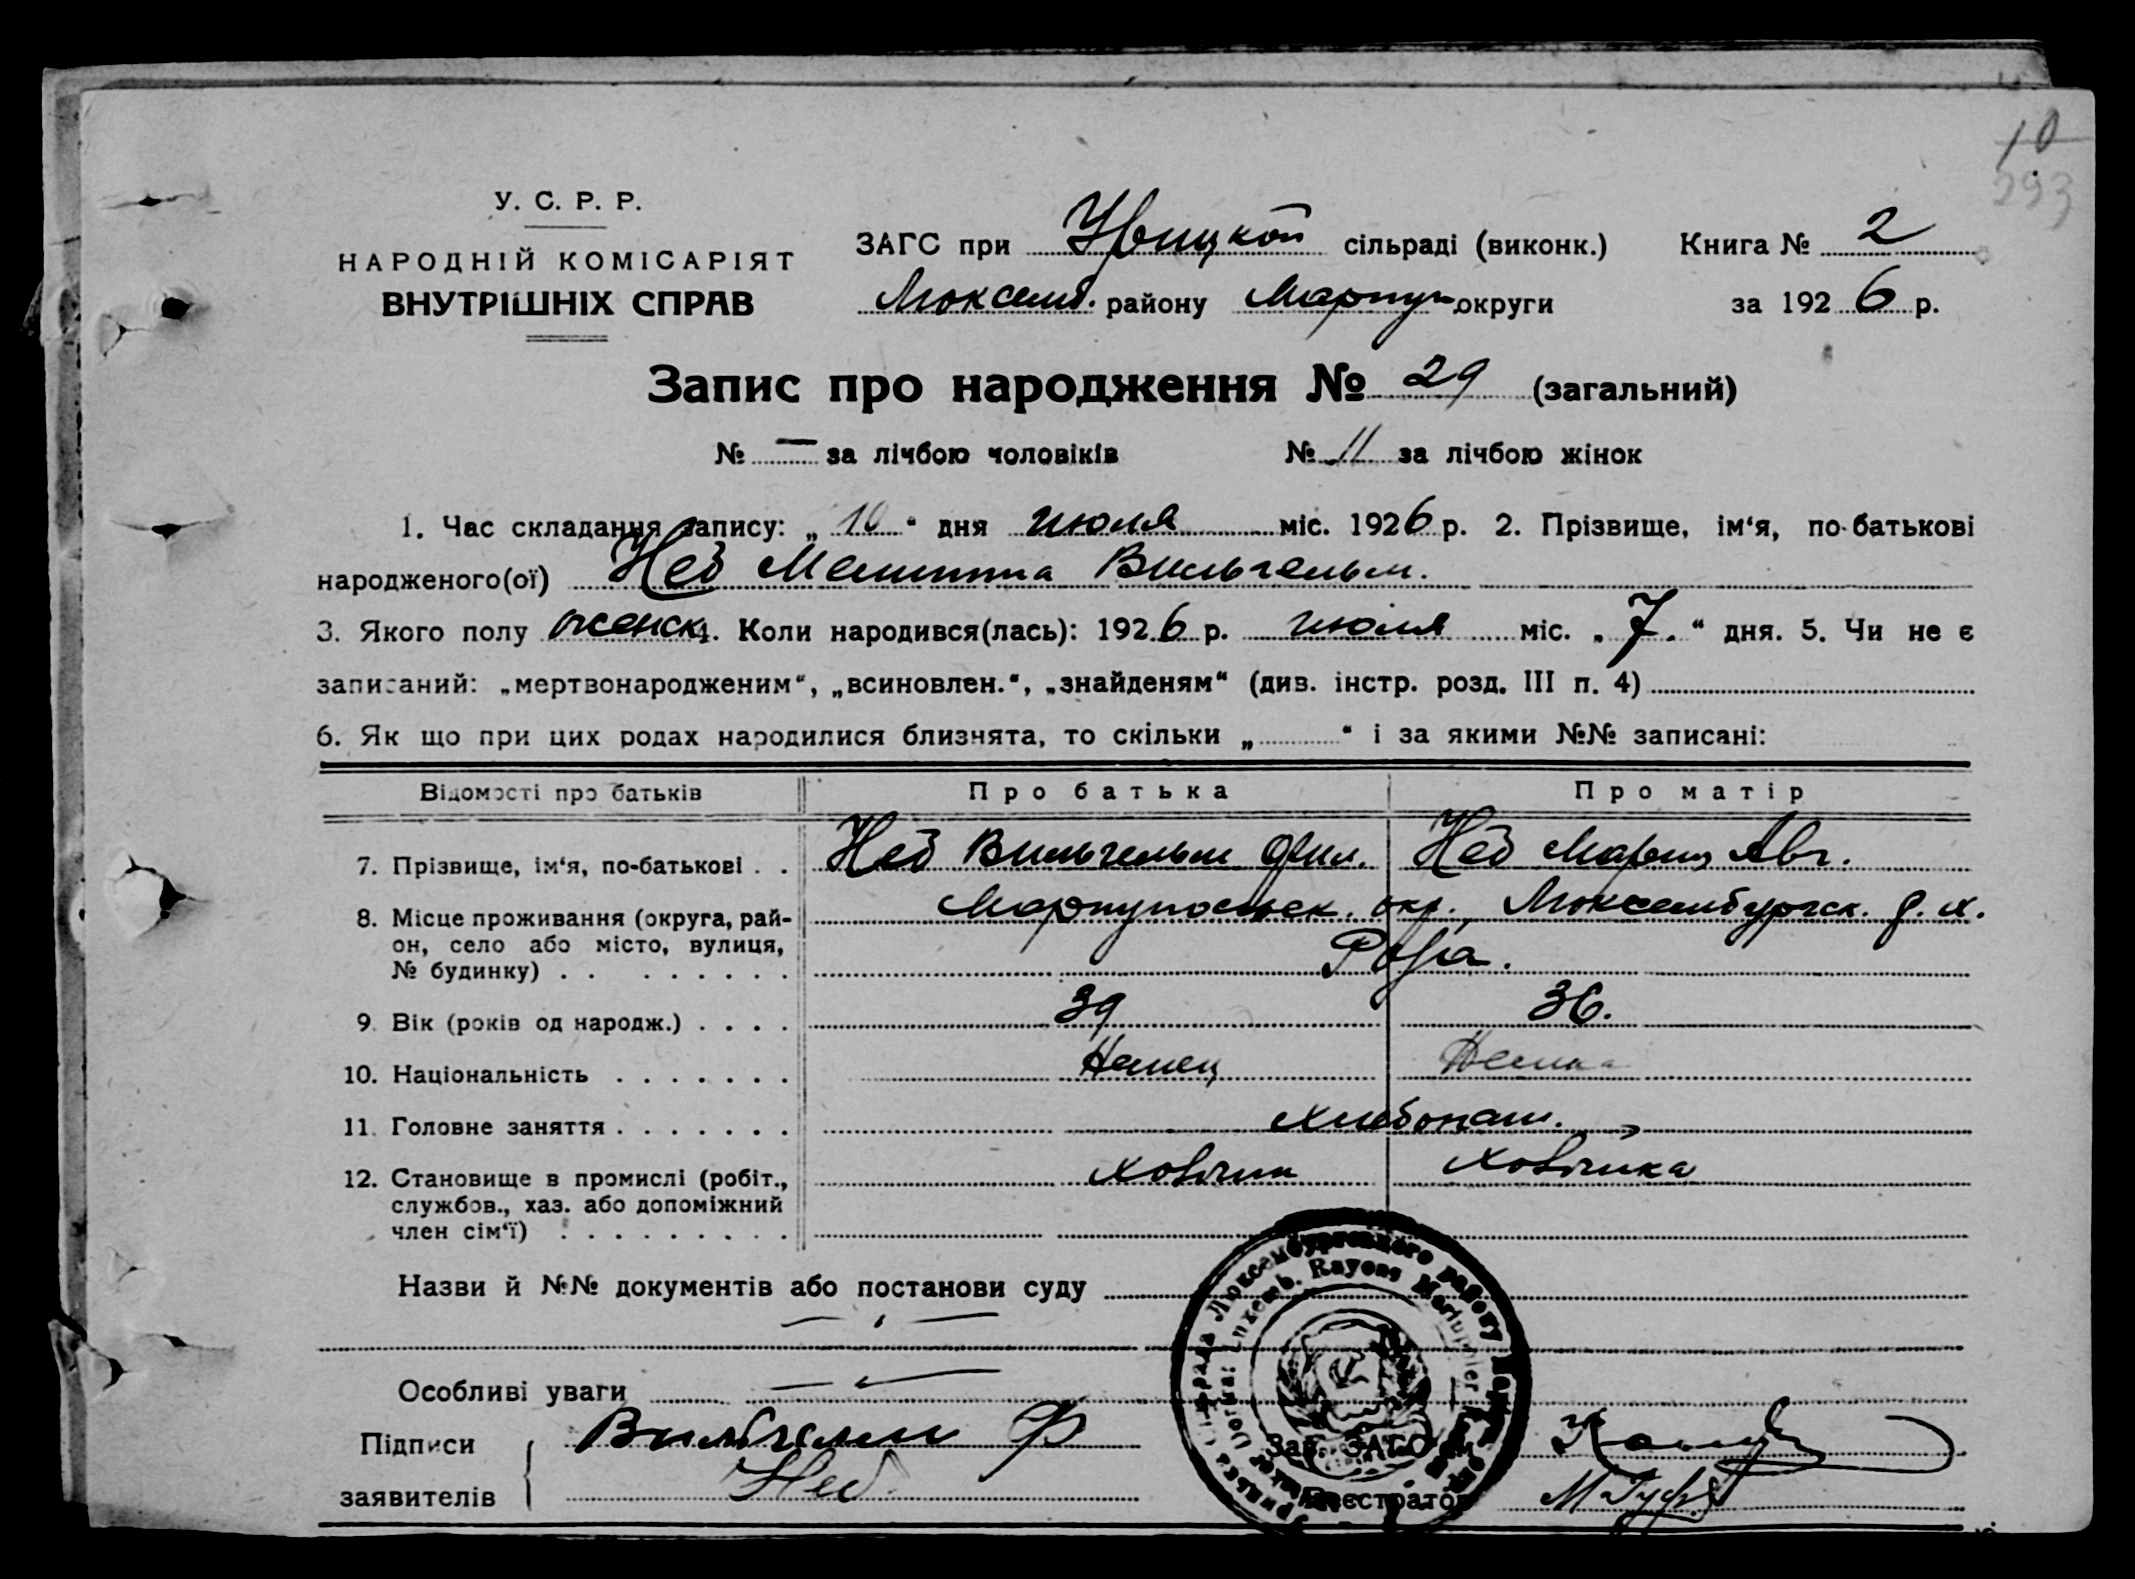 10
293
У. С. Р. Р.
НАРОДНІЙ КОМІСАРІЯТ
ВНУТРІШНІХ СПРАВ
ЗАГС при сільраді (виконк.) Книга № 2
Люксемб. району Мариуп округи за 1926 р.
Запис про народження № 29 (загальний)
№ — за лічбою чоловіків № 11 за лічбою жінок
1. Час складання запису: „10“ дня июля міс. 1926 р. 2. Прізвище, ім‘я, по-батькові
народженого(ої) Неб Вильгельм.
3. Якого полу женск 4. Коли народився(лась): 1926 р. июля міс. „7.“ дня. 5. Чи не є
записаний: „мертвонародженим“, „всиновлен.“, „знайденям“ (див. інстр. розд. III п. 4)
6. Як що при цих родах народилися близнята, то скільки „ “ і за якими №№ записані:
Відомости про батьків Про батька Про матір
7. Прізвище, ім‘я, по-батькові . . Неб Вильгельм Фил. Неб Мария Авг.
8. Місце проживання (округа, рай- Мариупольск. окр. Люксембургск.
он, село або місто, вулиця,
№ будинку) . . . . . . . .
9. Вік (років од народж.) . . . . 39 36.
10. Національність . . . . . . . Немец Немка
11. Головне заняття . . . . . . . хлебопаш.
12. Становище в промислі (робіт.,
службов., хаз. або допоміжний
член сім‘ї) . . . . . . . . .
Назви й №№ документів або постанови суду
Особливі уваги
Підписи Вильгельм Ф Зав. ЗАГС‘ом
заявителів Неб Реєстратор
Люксембургського району
Luxemb. Rayons Mariupoler